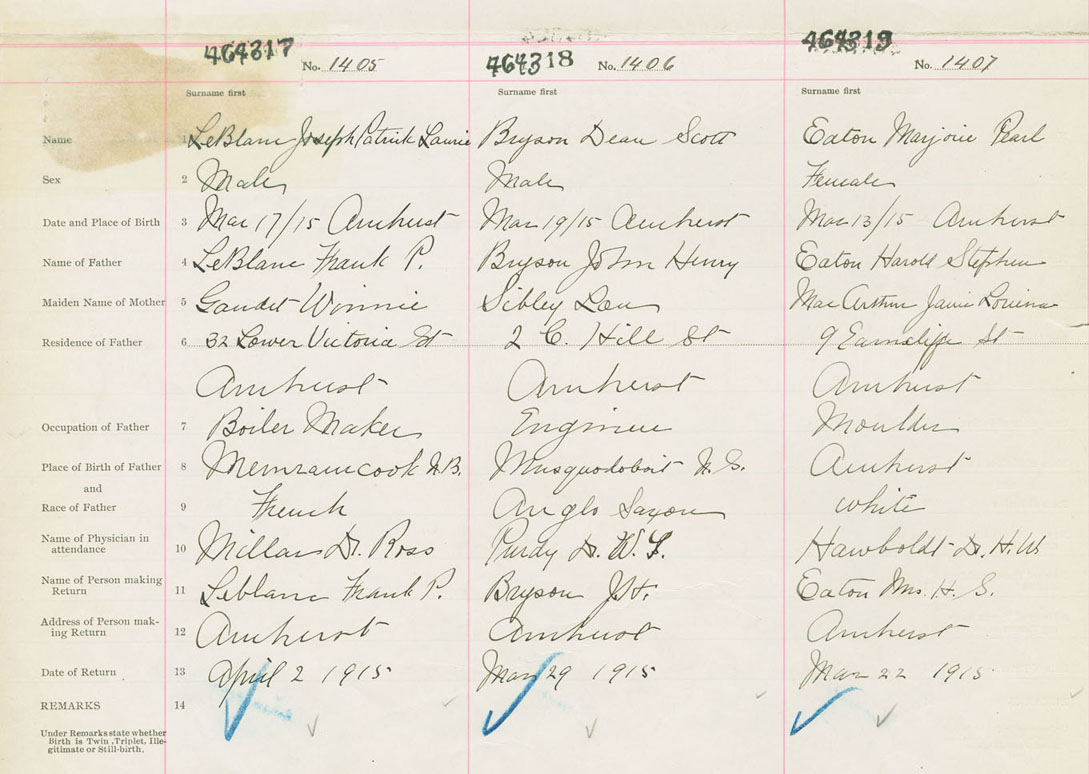 464317 464318 464319
No. 1405 No. 1406 No. 1407
Surname first Surname first Surname first
Name 1 LeBlanc Joseph Patrick Laurie Bryson Dean Scott Eaton Marjorie Pearl
Sex 2 Male Male Female
Date and Place of Birth 3 Mar 17/15 Amherst Mar 19/15 Amherst Mar 13/15 Amherst
Name of Father 4 LeBlanc Frank P. Bryson John Henry Eaton Harold Stephen
Maiden Name of Mother 5 Gaudet Winnie Sibley Lou MacArthur Janie Louiena
Residence of Father 6 32 Lower Victoria St 2 C. Hill St 9 Earncliffe St
Amherst Amherst Amherst
Occupation of Father 7 Boiler Maker Engineer Moulder
Place of Birth of Father 8 Memramcook N.B. Musquodoboit N.S. Amherst
and
Race of Father 9 French Anglo Saxon white
Name of Physician in
attendance 10 Millar Dr. Ross Purdy Dr. W. F. Hawboldt Dr. H. W
Name of Person making
Return 11 Leblanc Frank P. Bryson J.H. Eaton Mrs. H. S.
Address of Person mak-
ing Return 12 Amherst Amherst Amherst
Date of Return 13 April 2 1915 Mar 29 1915 Mar 22 1915
REMARKS 14
Under Remarks state whether
Birth is Twin, Triplet, Ille-
gitimate or Still-birth.